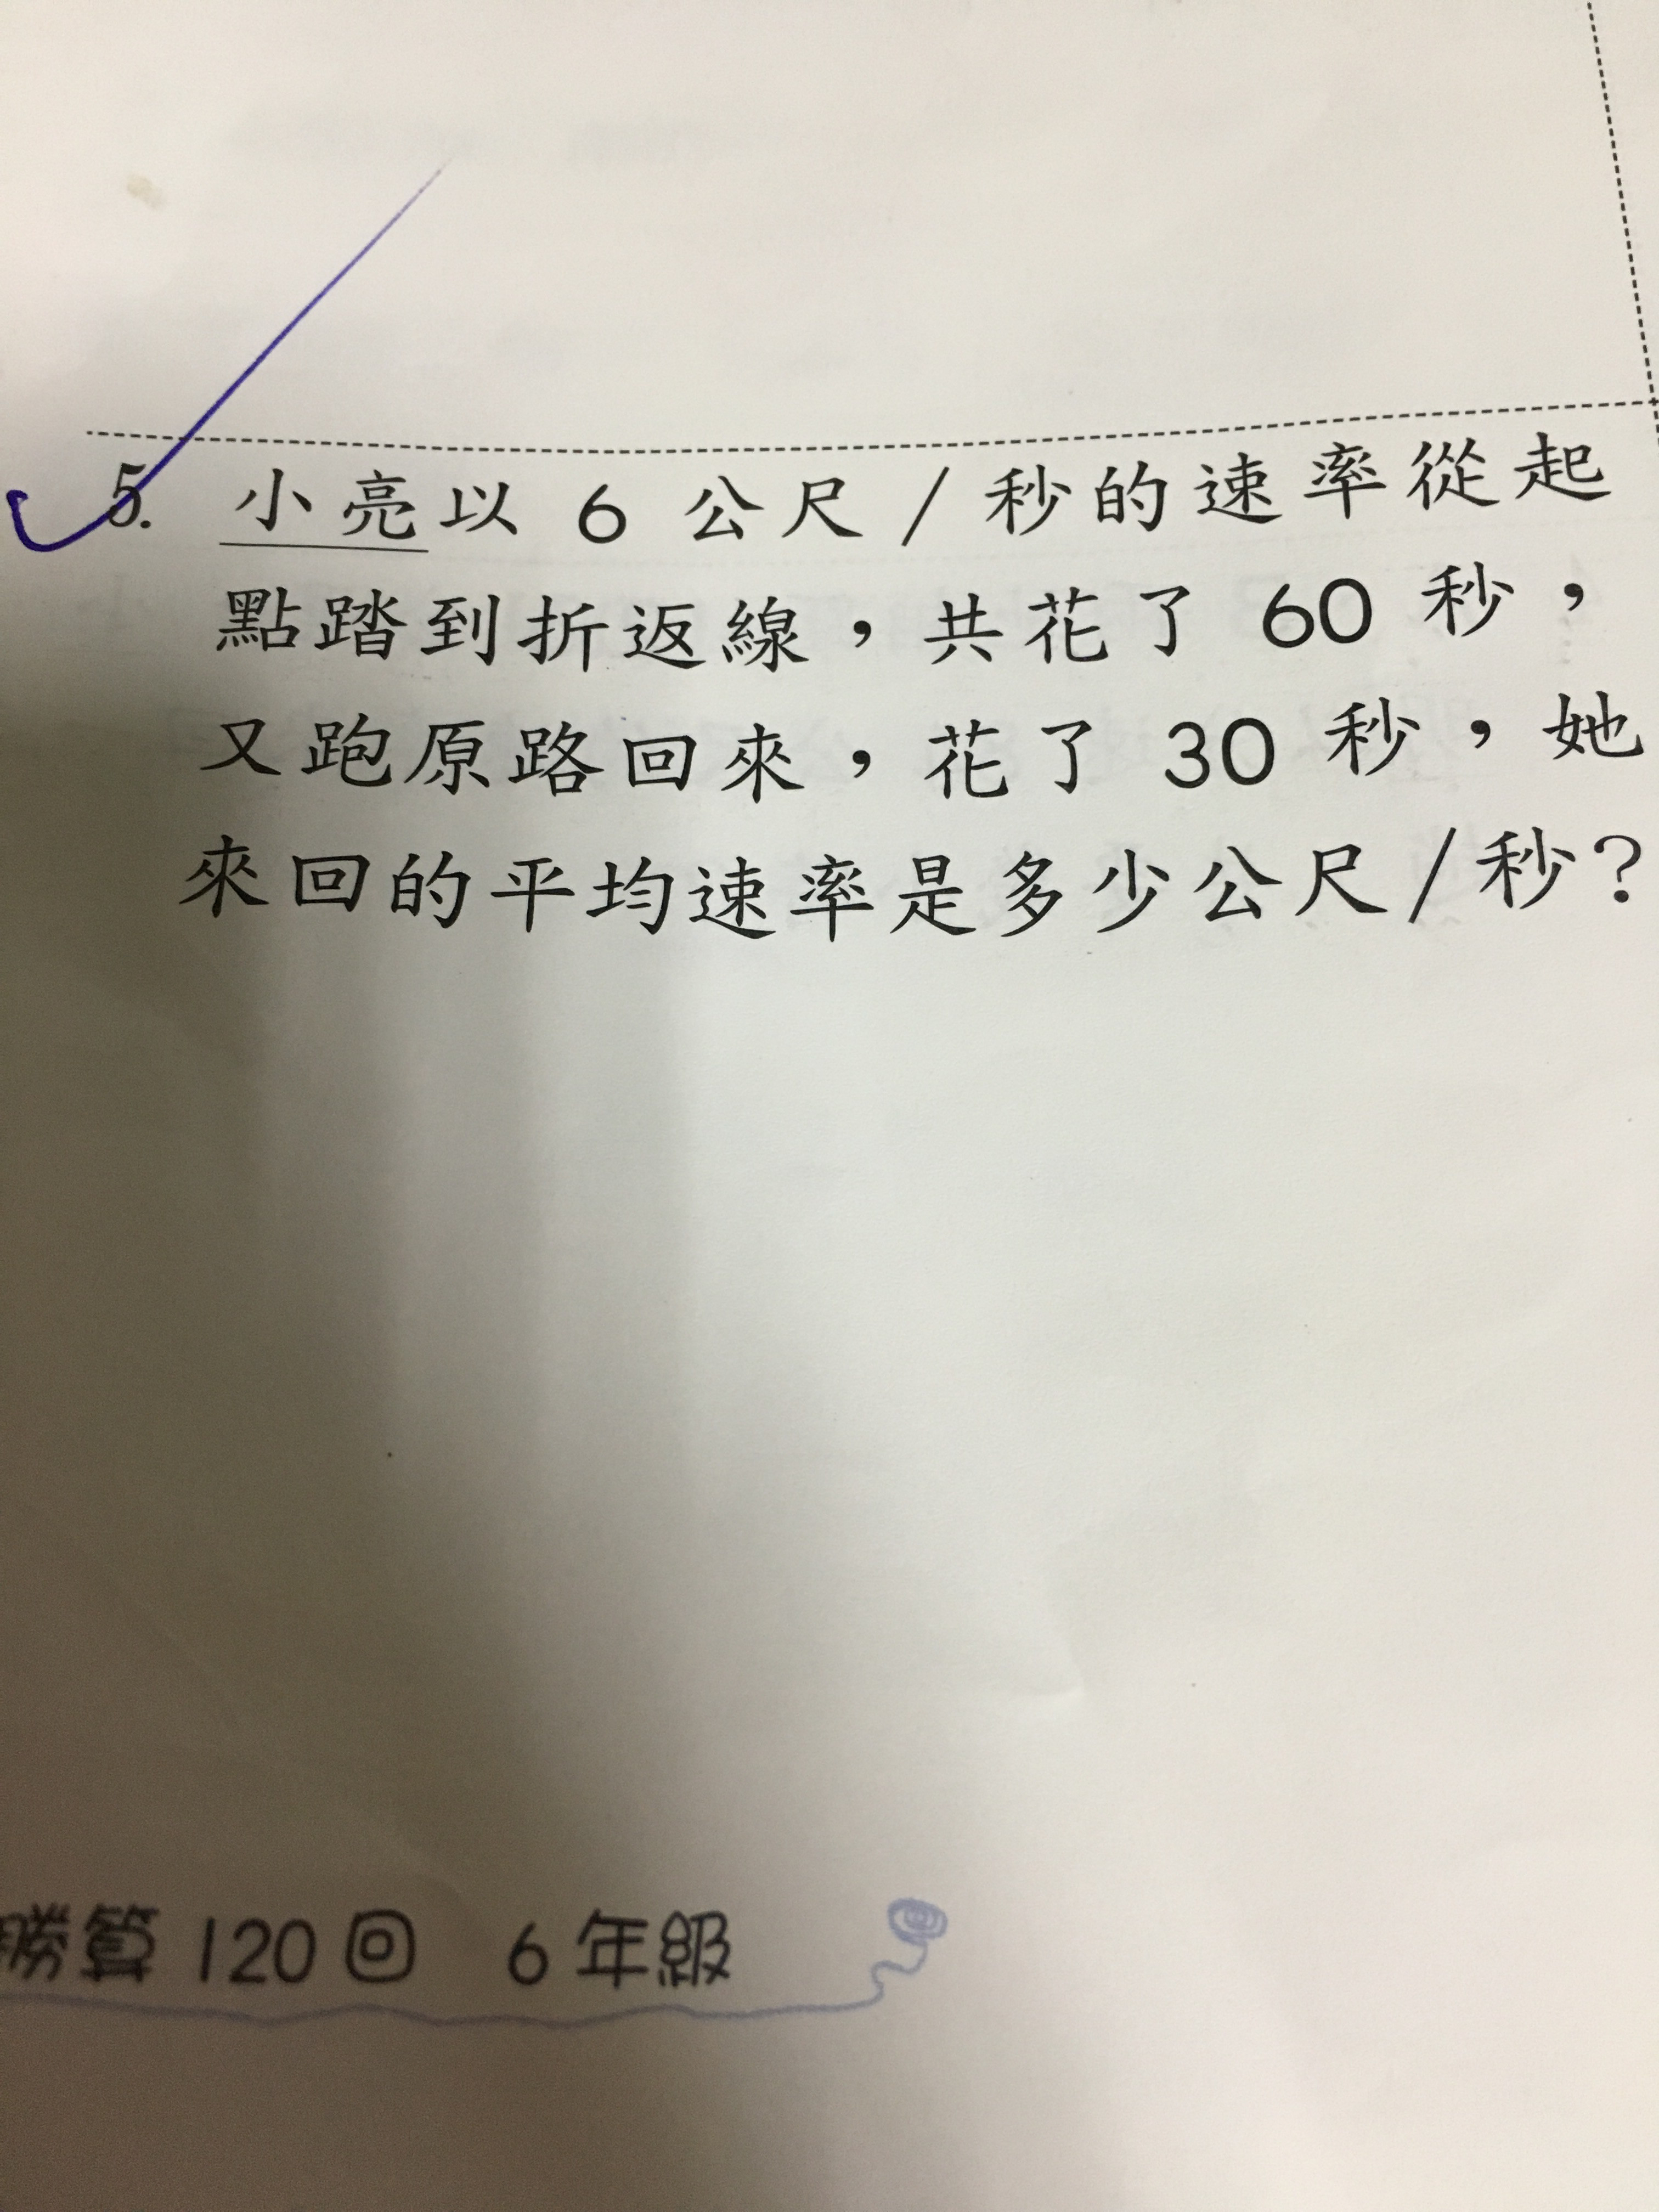 5. 小亮以 6 公尺/秒的速率從起
點踏到折返線，共花了 60 秒，
又跑原路回來，花了 30 秒，她
來回的平均速率是多少公尺/秒？
勝算 120 回 6 年級